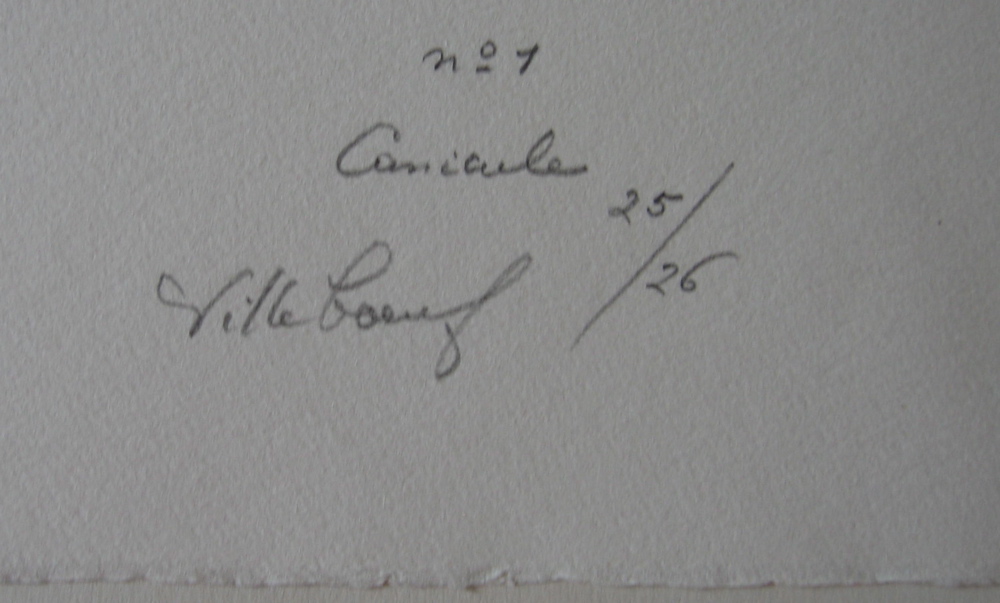 nº 1
Canicule
25/26
Villeboeuf